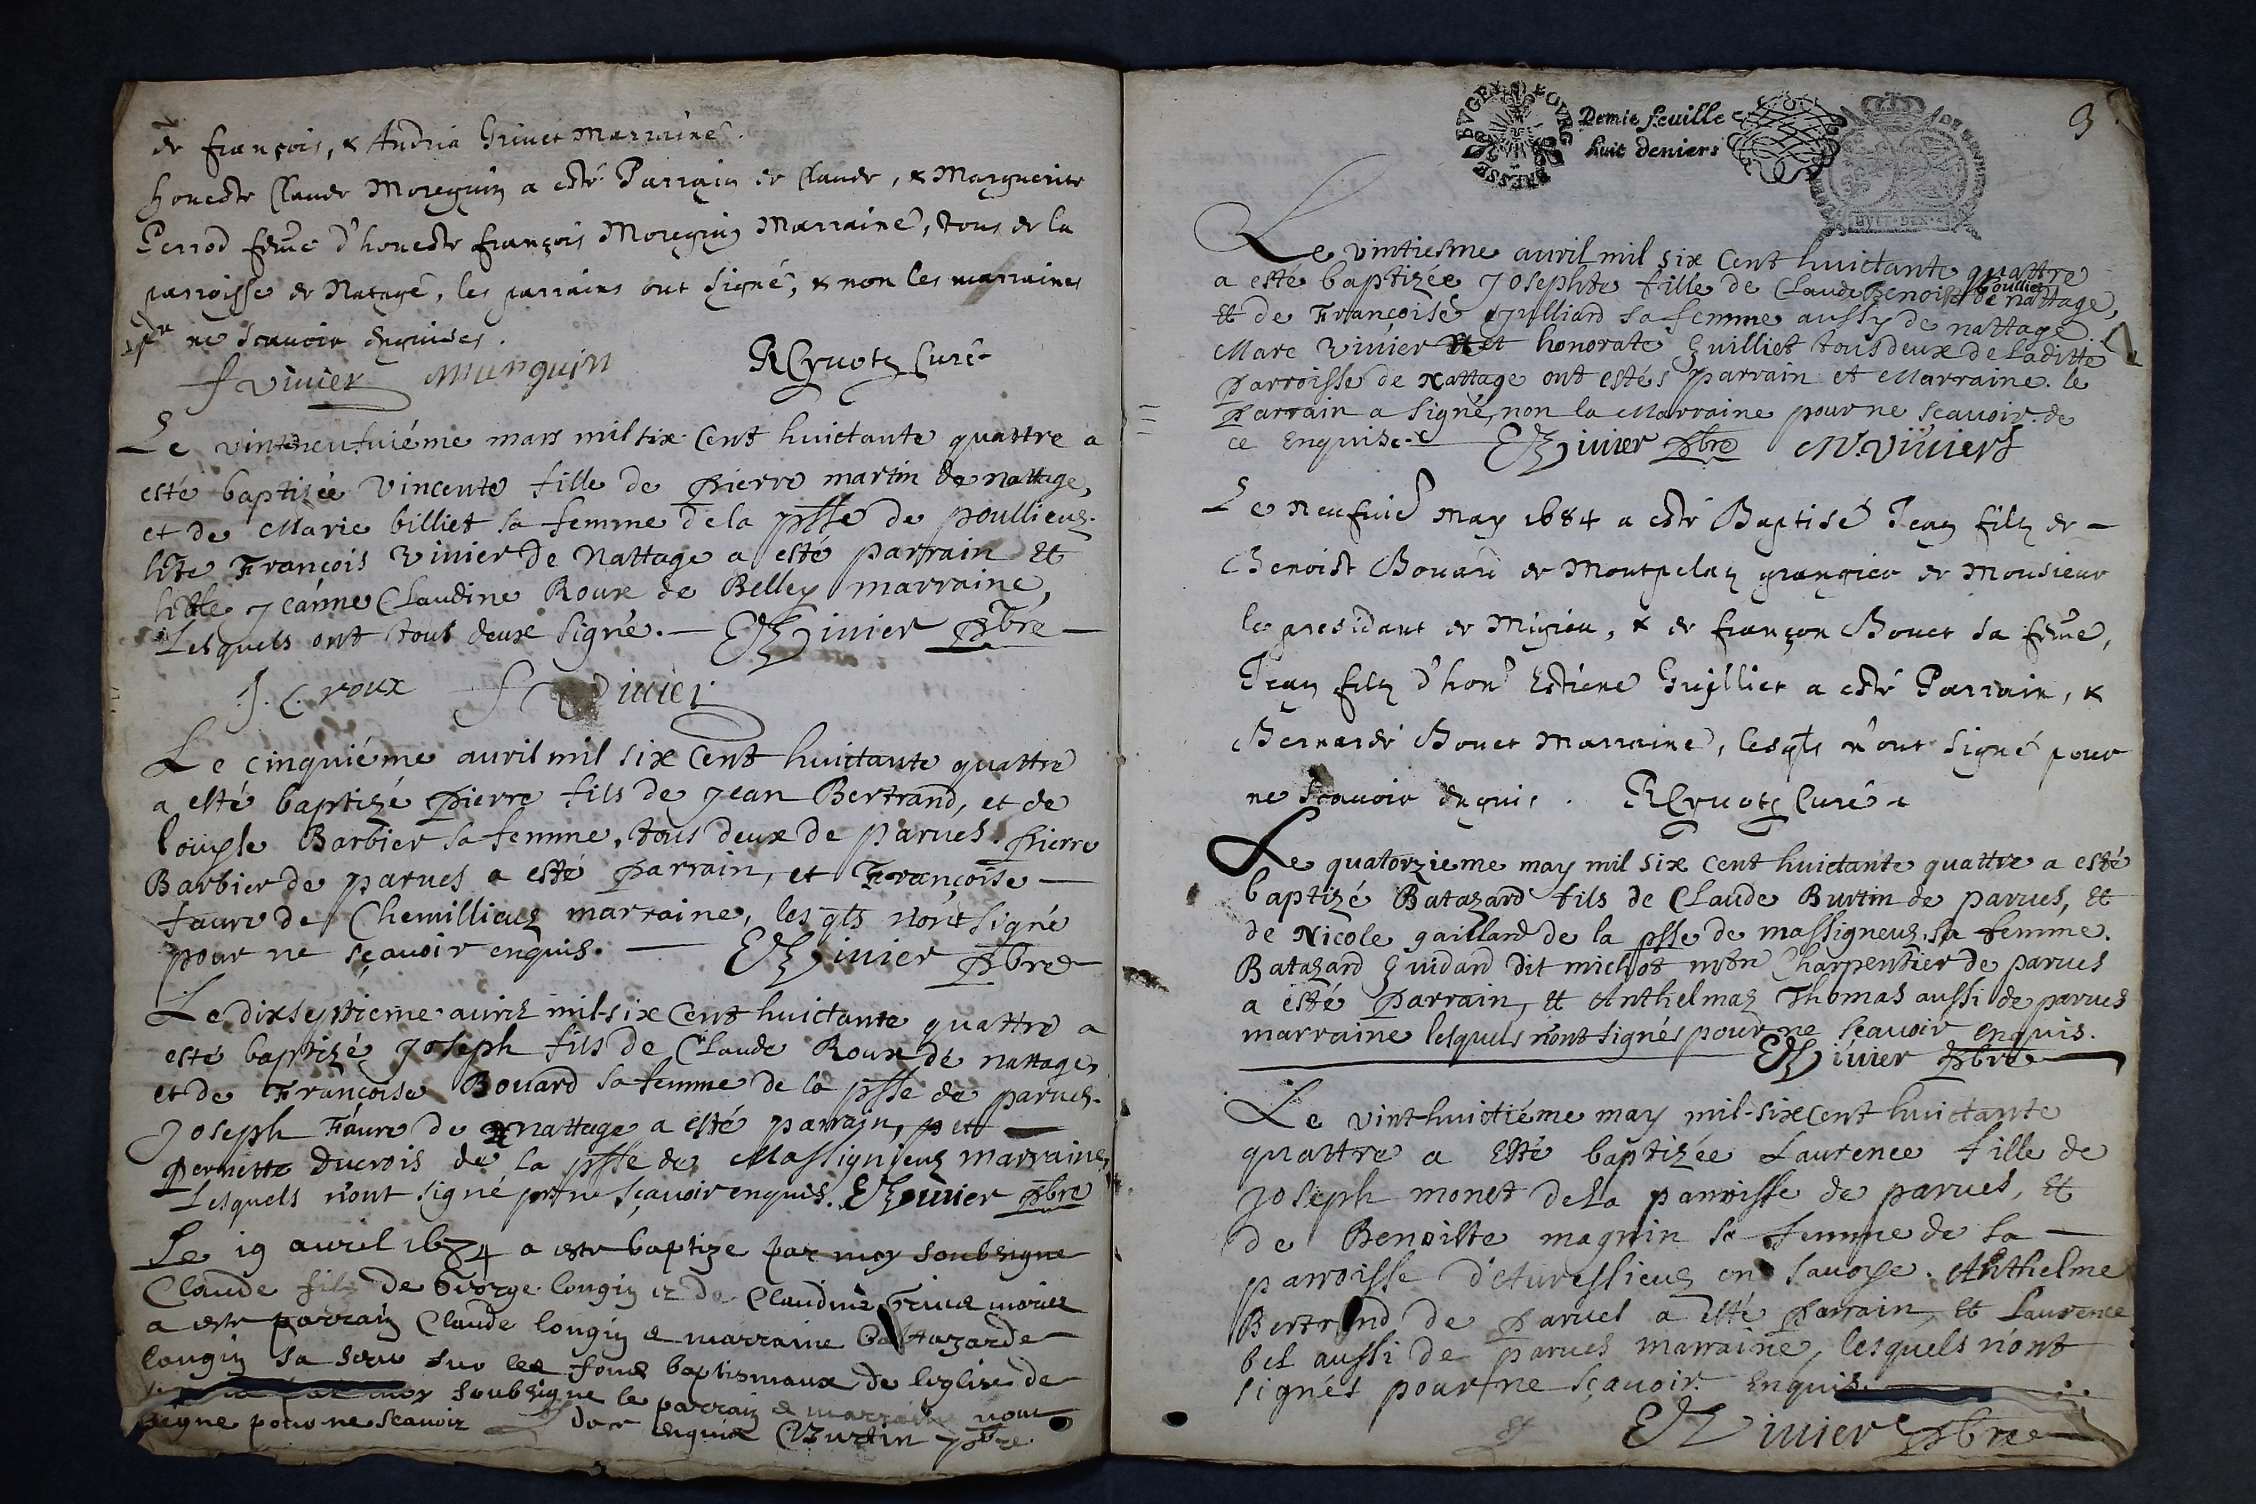 de françois, & Andria Grinet Marraine.
honeste Claude Moreguin a esté Parrain de Claude, & Marguerite
Perrod feme d'honeste françois Moreguin Marraine, tous de la
parroisse de Natage, les parrains ont signé, & non les marraines
pr ne scavoir enquises.
f vivier Murguin R Cyvotz Curé
Le vintneufuiéme mars mil six cent huictante quattre a
esté baptizée Vincente fille de pierre martin de nattage,
et de Marie billiet sa femme de la psse de poullieuz.
hste François Vivier de Nattage a esté parrain et
hble Jeanne Claudine Roux de Belley marraine,
Lesquels ont tous deux signé. — E Vivier pbre —
J. C. roux f Vivier
Le cinquiéme auril mil six cent huictante quattre
a esté baptizé pierre fils de Jean Bertrand, et de
Barbier sa femme, tous deux de parues. pierre
Barbier de parues a esté parrain, et Françoise —
faure de Chemillieuz marraine, les qls n'ont signé
pour ne sçauoir enquis. — E Vivier pbre
Le dixseptieme auril mil-six Cent huictante quattre a
esté baptizé Joseph fils de Claude Roux de nattage
et de Françoise Bouard sa femme de la psse de parues.
Joseph Faure de nattage a esté parrain, et —
pernette Ducrois de la psse de Massignieuz marraine,
Lesquels n'ont signé pr ne sçauoir enquis. E Vivier pbre
Le 19 auril 1684 a este baptize par moy soubsigne
Claude filz de George longin et de Claudine
a este parrain Claude longin e marraine Baltazarde
longin sa seur sur les fons baptismaux de leglise de
par moy soubsigne le parrain e marraine nont
signe pour ne scauoir de ce enquis Burtin pbre
Demie feuille
huit deniers
BVGEY BOVRG BRESSE
HVIT DEN
3
Le vintiesme auril mil six Cent huictante quattre
a esté baptizée Josephte fille de Claude Benoist Poullier de nattage,
et de Françoise Julliard sa femme aussy de nattage
Marc Vivier et honorate Guilliet tous deux de laditte
parroisse de nattage ont estés parrain et Marraine. le
parrain a signé, non la Marraine pour ne sçauoir de
ce enquise. E Vivier pbre M. Viviers
Le neufuie may 1684 a esté Baptisé Jean filz de —
Benoist Bouard de Montpelaz grangier de Monsieur
le presidant de Migieu, & de françon Bouet sa feme,
Jean filz d'hone Estiene Guilliet a esté Parrain, &
Bernarde Bouet Marraine, lesqls n'ont signé pour
ne scauoir enquis. R Cyvotz Curé
Le quatorzieme may mil six cent huictante quattre a esté
baptizé Batazard fils de Claude Burtin de parues, et
de Nicole gaillard de la psse de massigneuz sa femme.
Batazard Guidard dit michot mtre Charpentier de parues
a esté parrain, et Anthelmaz Thomas aussi de parues
marraine lesquels n'ont signés pour ne scauoir enquis.
E Vivier pbre
Le vint-huictiéme may mil-six cent huictante
quattre a esté baptizée Laurence fille de
Joseph monet de la parroisse de parues, et
de Benoiste magnin sa femme de la —
parroisse d'Auressieuz en Sauoye. Anthelme
Bertrand de parues a esté parrain, et Laurence
bel aussi de parues marraine, lesquels n'ont
signés pour ne sçauoir. Enquis.
E Vivier pbre